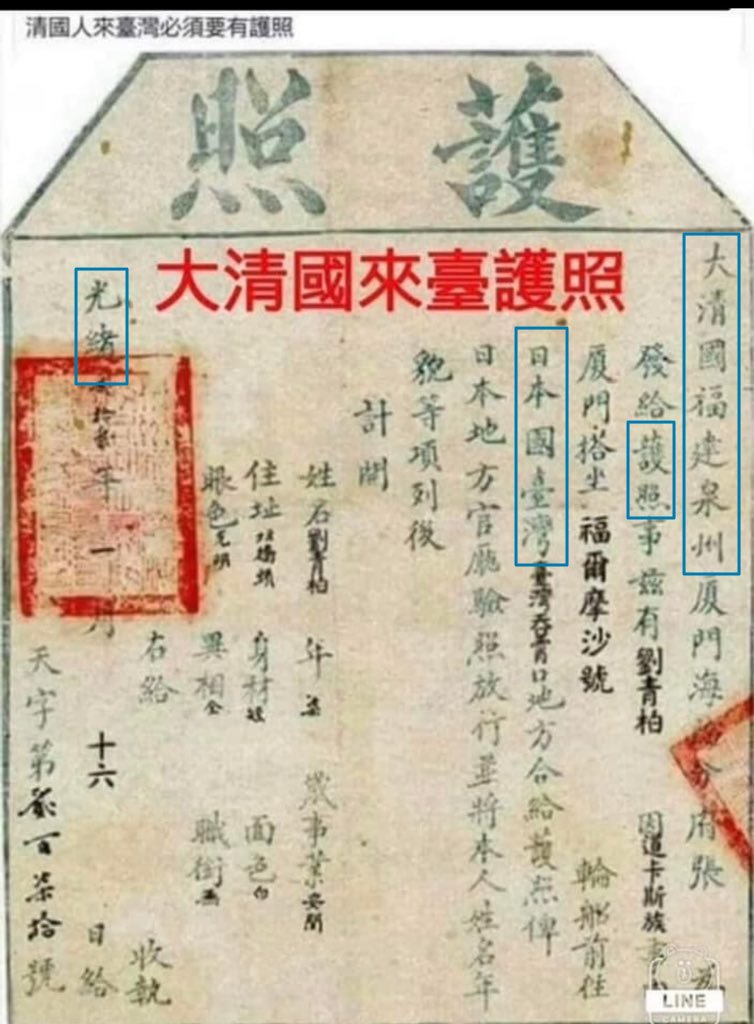 清國人來臺灣必須要有護照
護照
大清國來臺護照
大清國福建泉州廈門海防分府張 為
發給護照事茲有劉青柏 因道卡斯族事
廈門搭坐 福爾摩沙號 輪船前往
日本國臺灣臺灣吞霄口地方合給護照俾
日本地方官廳驗照放行並將本人姓名年
貌等項列後
計開
姓名劉青柏 年 歲事業
住址 身材 面色白
眼色光明 異相全 職銜無
右給 收執
光緒 年 一 月 十六 日給
天字第貳百柒拾號
LINE
CAMERA